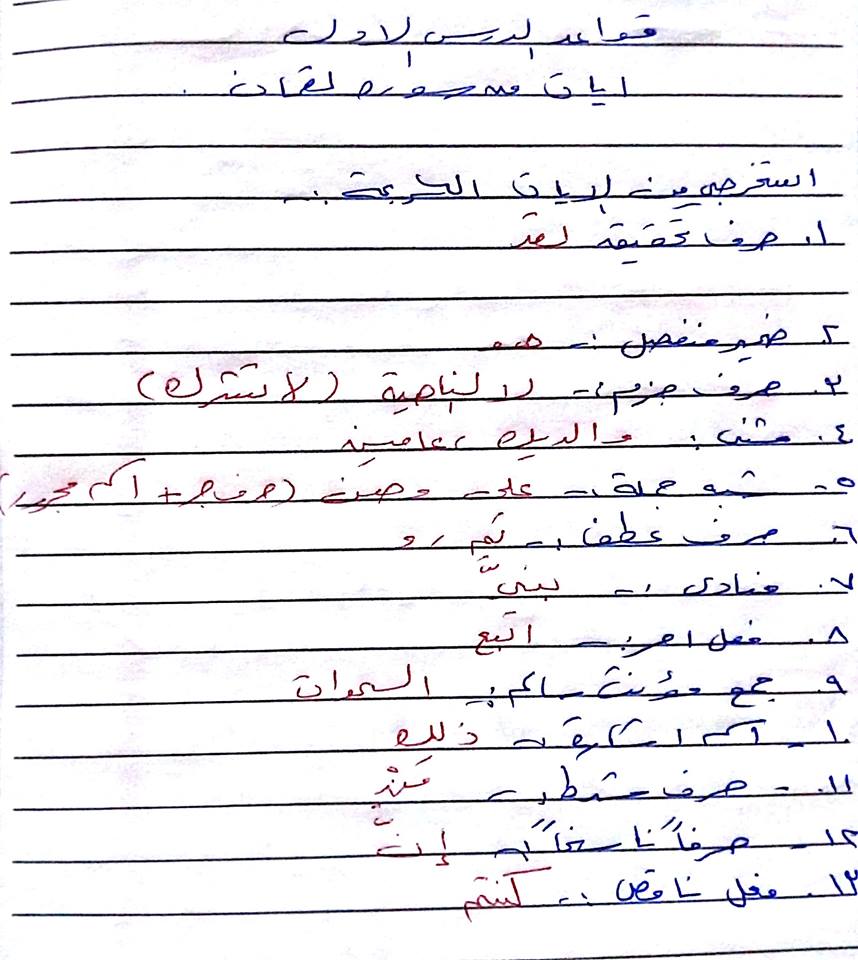 قواعد الدرس الاول
ايات من سورة لقمان .
استخرجي من الايات الكريمة :-
١. حرف تحقيقة لقد
٢. ضمير منفصل :- هو
٣. حرف جزم :- لا الناهية (لا تشرك)
٤. مثنى : والديك ، عامين
٥- شبه جملة :- على وهن (حرف جر + اسم مجرور)
٦. حرف عطف :- ثم ، و
٧. منادى :- بنيَّ
٨. فعل امر :- اتبع
٩. جمع مؤنث سالم :- السموات
١٠- اسم اشارة :- ذلك
١١- حرف شرط :- مَنْ
١٢- حرفاً ناسخاً :- إنَّ
١٣. فعل ناقص :- كنتم